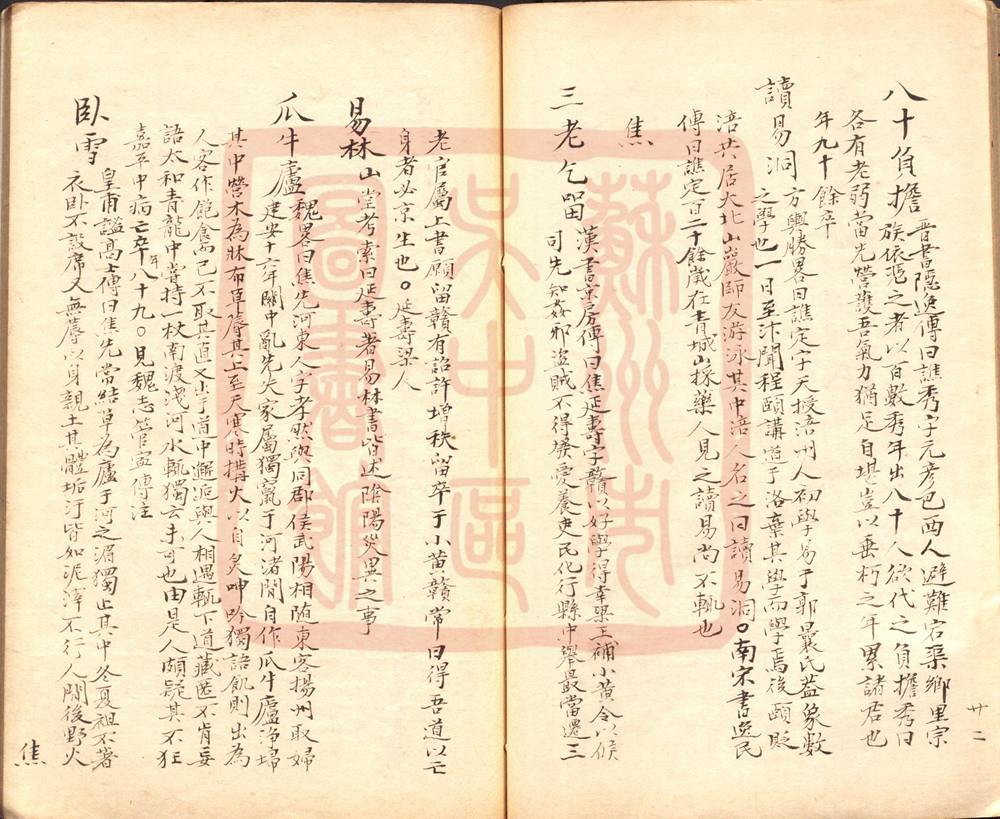 八十負擔 晋書隱逸傳曰譙秀字元彦巴西人避難宕渠鄉里宗
族依憑之者以百數秀年出八十人欲代之負擔秀曰
各有老弱當先營護吾氣力猶足自堪豈以垂朽之年累諸君也
年九十餘卒
讀易洞 方輿勝畧曰譙定字天授涪州人初學易于郭曩氏蓋象數
之學也一日至汴聞程頤講道于洛棄其學而學焉後頤貶
涪共居大北山巖師友游泳其中涪人名之曰讀易洞○南宋書逸民
傳曰譙定百二十餘歲在青城山採藥人見之讀易尚不輟也
焦
三老乞留 漢書京房傳曰焦延壽字贛以好學得幸梁王補小黄令以候
司先知姦邪盗賊不得發愛養吏民化行縣中舉最當遷三
廿二
老官屬上書願留贛有詔許增秩留卒于小黄贛常曰得吾道以亡
身者必京生也○延壽梁人
易林 山堂考索曰延壽著易林書皆述陰陽災異之事
瓜牛廬 魏畧曰焦先河東人字孝然與同郡侯武陽相随東客揚州取婦
建安十六年關中亂先失家屬獨竄于河渚間自作瓜牛廬净埽
其中營木為牀布草蓐其上至天寒時搆火以自炙呻吟獨語飢則出為
人客作飽食而已不取其直又出于道中邂逅與人相遇輒下道藏匿不肯妄
語太和青龍中嘗持一杖南渡浅河水輒獨云未可也由是人頗疑其不狂
嘉平中病亡卒年八十九○見魏志管寧傳注
臥雪 皇甫謐高士傳曰焦先常結草為廬于河之湄獨止其中冬夏袒不著
衣臥不設席又無蓐以身親土其體垢汙皆如泥滓不行人間後野火
焦
蘇州市
吴中區
圖書館